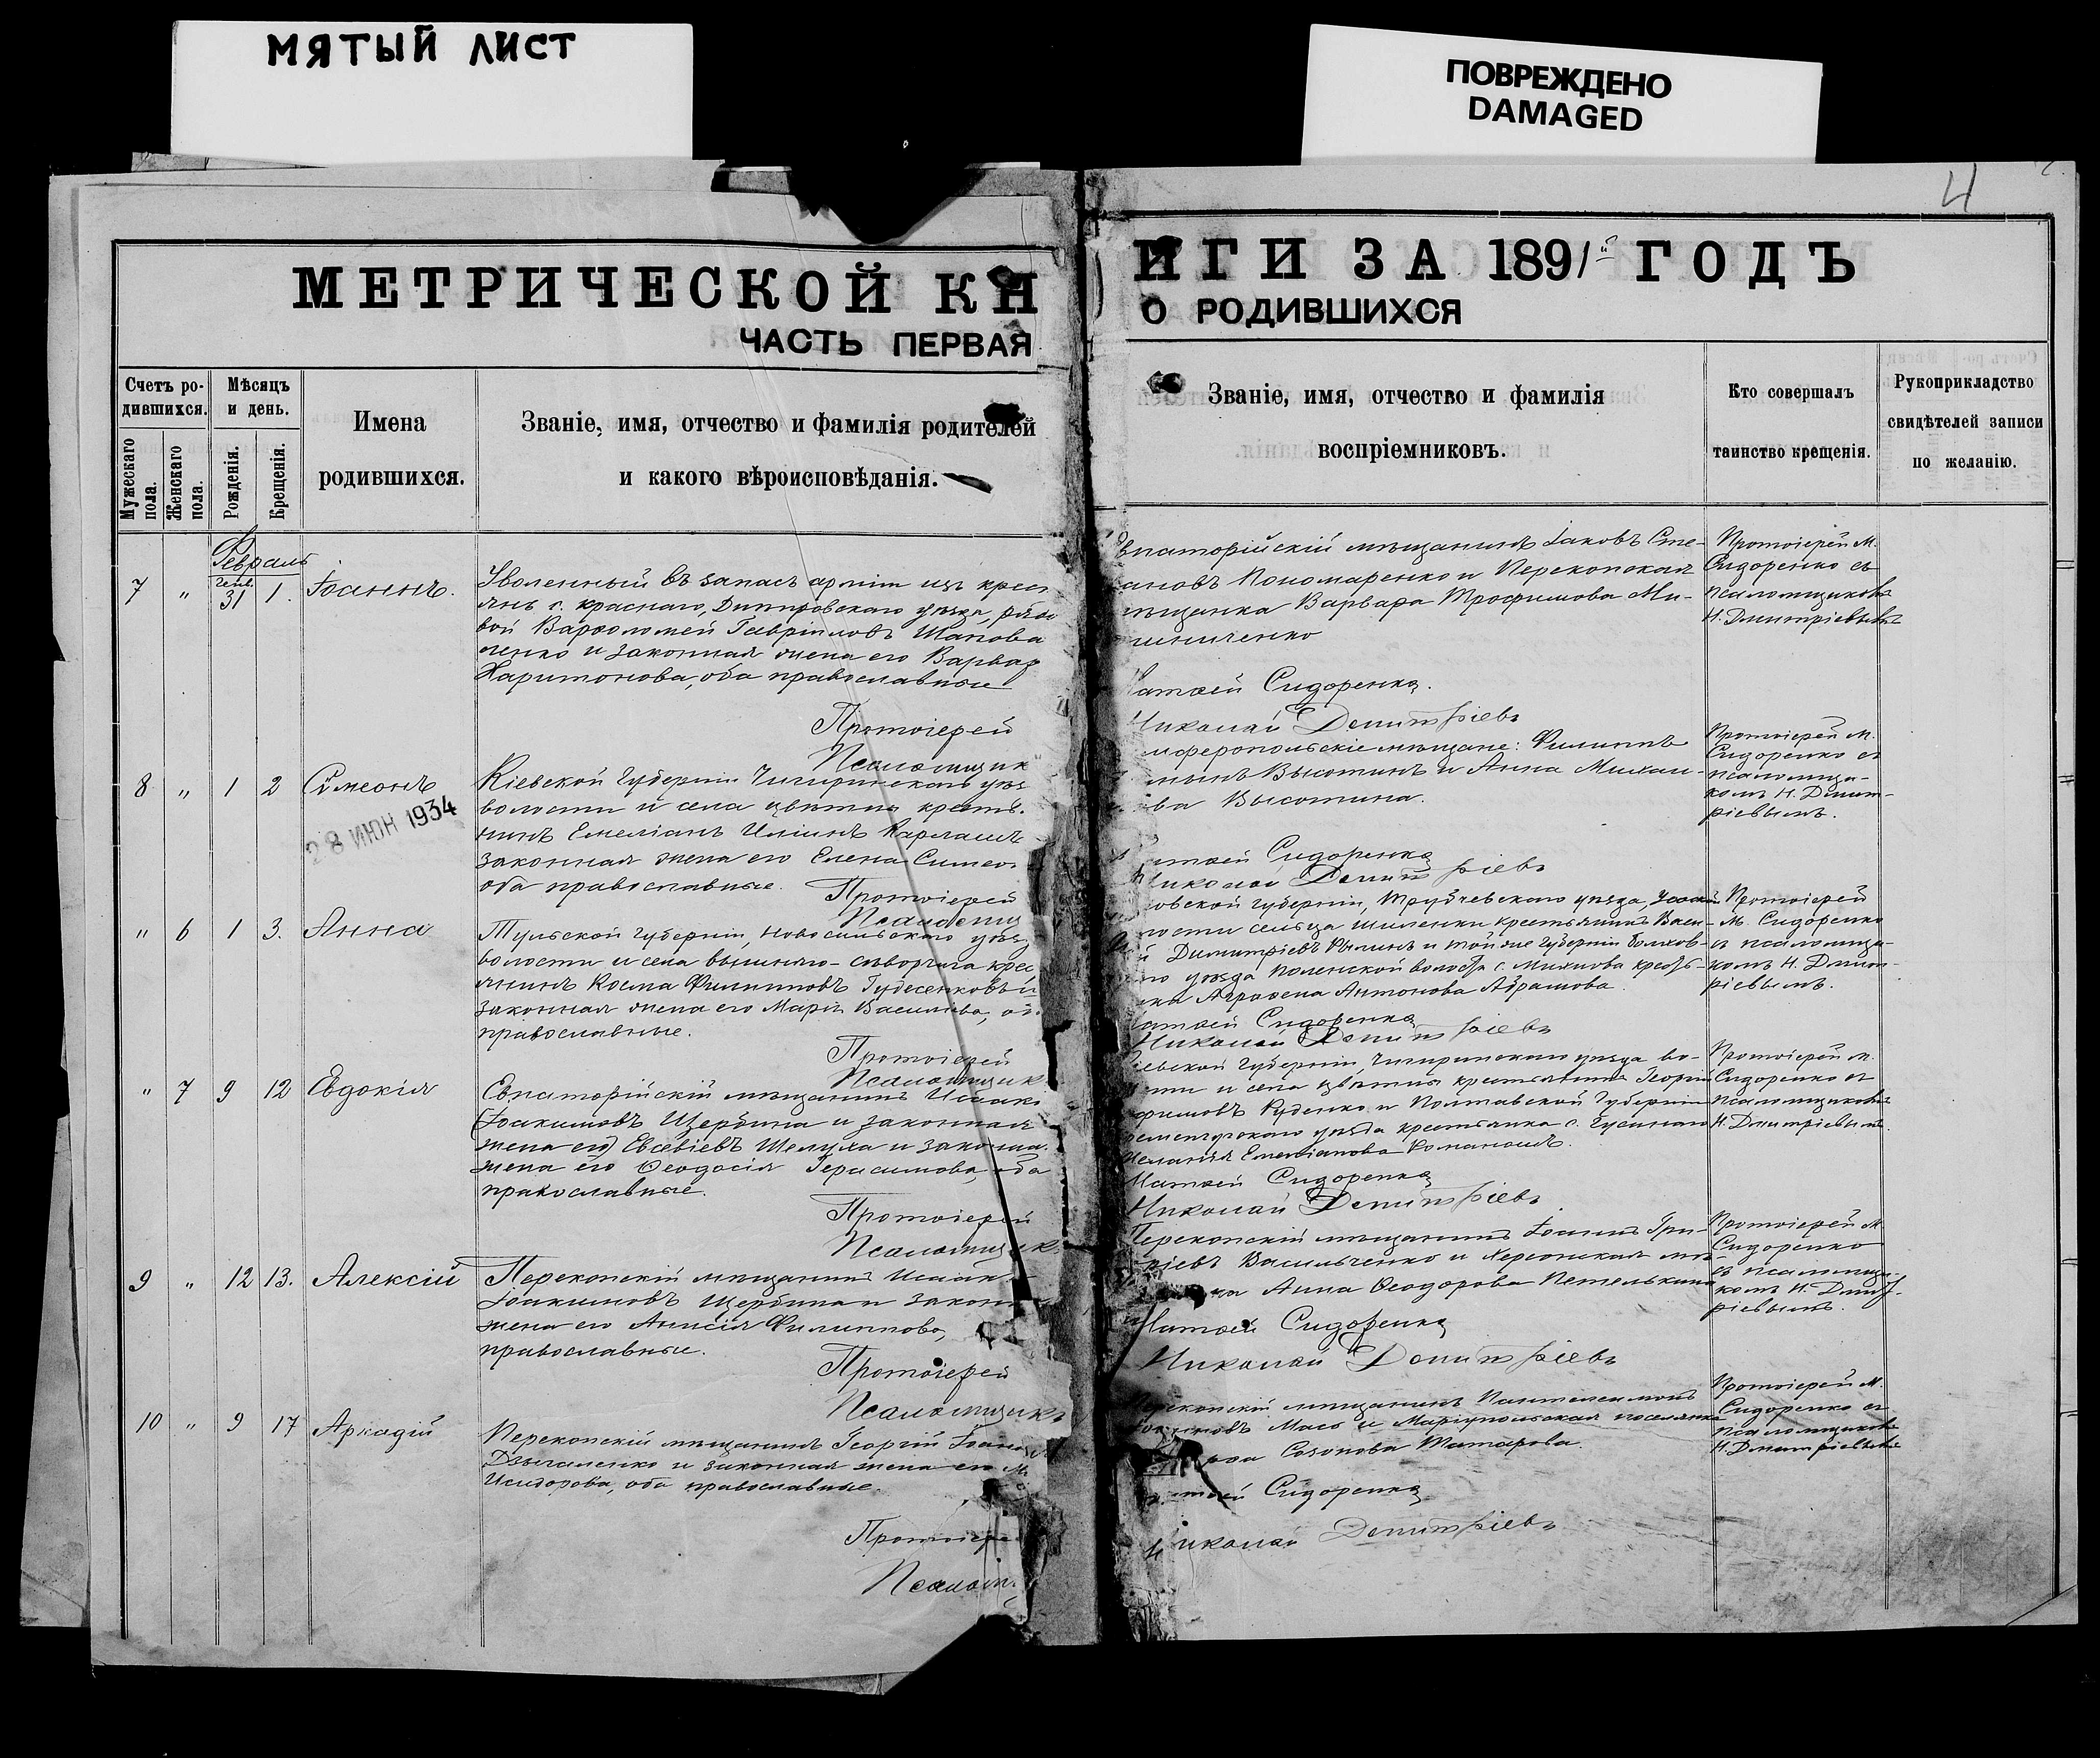 МЯТЫЙ ЛИСТ
ПОВРЕЖДЕНО
DAMAGED
4
МЕТРИЧЕСКОЙ КН
ИГИ ЗА 1891й ГОДЪ
ЧАСТЬ ПЕРВАЯ
О РОДИВШИХСЯ
Счетъ ро-
дившихся.
Мѣсяцъ
и день.
Мужескаго
пола.
Женскаго
пола.
Рожденія.
Крещенія.
Имена
родившихся.
Званіе, имя, отчество и фамилія родителей
и какого вѣроисповѣданія.
Званіе, имя, отчество и фамилія
воспріемниковъ.
Кто совершалъ
таинство крещенія.
Рукоприкладство
свидѣтелей записи
по желанію.
Февраль
7 " Генв. 31 1. Іоаннъ.
Уволенный въ запасъ арміи изъ крест
янъ с. Краснаго, Днѣпровскаго уѣзда, рядо
вой Варѳоломей Гавріиловъ Шапова
ленко и законная жена его Варвар
Харитонова, оба православные
Протоіерей
Псаломщик
впаторійскій мѣщанинъ Іаковъ Сте-
ановъ Пономаренко и Перекопская
мѣщанка Варвара Трофимова Ми-
ниченко
атѳей Сидоренко.
Николай Димитріевъ
Протоіерей М.
Сидоренко съ
псаломщикомъ
Н. Дмитріевымъ
8 " 1 2 Сѵмеонъ
28 ИЮН 1934
Кіевской губерніи Чигиринскаго уѣз
волости и села Цвѣтны крестья
нинъ Емеліанъ Иліинъ Карлашъ
законная жена его Елена Симеон
оба православные.
Протоіерей
Псаломщ
мферопольскіе мѣщане: Филиппъ
Высотинъ и Анна Михаи-
ва Высотина.
атѳей Сидоренко
Николай Димитріевъ
Протоіерей М.
Сидоренко съ
псаломщи-
комъ Н. Дмит-
ріевымъ.
" 6 1 3. Анна
Тульской губерніи, Новосильскаго уѣз
волости и села Вышняго-Скворчага крес
янинъ Косма Филипповъ Гудесенковъ и
законная жена его Марія Василіева, об
православные.
Протоіерей
Псаломщик
овской губерніи, Трубчевскаго уѣзда,
лости сельца Шиленки крестьянинъ Васи-
й Димитріевъ Рылинъ и той же губерніи Болхов-
го уѣзда волости с. крестья-
ка Агрипена Антонова Абрамова.
атѳей Сидоренко
Николай Димитріевъ
Протоіерей
М. Сидоренко
съ псаломщи-
комъ Н. Дмит-
ріевымъ.
" 7 9 12 Евдокія
Евпаторійскій мѣщанинъ Исаак
(Іоакимовъ Щербина и законная
жена его) Евсевіевъ Шелуха и законна
жена его Ѳеодосія Герасимова, оба
православные.
Протоіерей
Псаломщик.
іевской губерніи, Чигиринскаго уѣзда во-
сти и села Цвѣтны крестьянинъ Георгій
фимовъ Руденко и Полтавской губерніи
ременчугскаго уѣзда крестьянка с.
Меланія Емеліанова Романошъ.
Матѳей Сидоренко
Николай Димитріевъ
Протоіерей М.
Сидоренко съ
псаломщикомъ
Н. Дмитріевымъ.
9 " 12 13. Алексій
Перекопскій мѣщанинъ Исаак
Іоакимовъ Щербина и законн
жена его Анисія Филиппова,
православные.
Протоіерей
Псаломщикъ
Перекопскій мѣщанинъ Іоаннъ Гри-
ріевъ Васильченко и Херсонская мѣ-
ка Анна Ѳеодорова Петелькина
Матѳей Сидоренко
Николай Димитріевъ
Протоіерей М.
Сидоренко
съ псаломщи-
комъ Н. Дмит-
ріевымъ.
10 " 9 17 Аркадій
Перекопскій мѣщанинъ Георгій Іоанно
Дзыгаленко и законная жена его М
Исидорова, оба православные.
Протоіере
Псалом
рекопскій мѣщанинъ Пантелеимонъ
Масо и Маріупольская поселянка
Созонова Татарова.
атѳей Сидоренко
Николай Димитріевъ
Протоіерей М.
Сидоренко съ
псаломщикомъ
Н. Дмитріевымъ